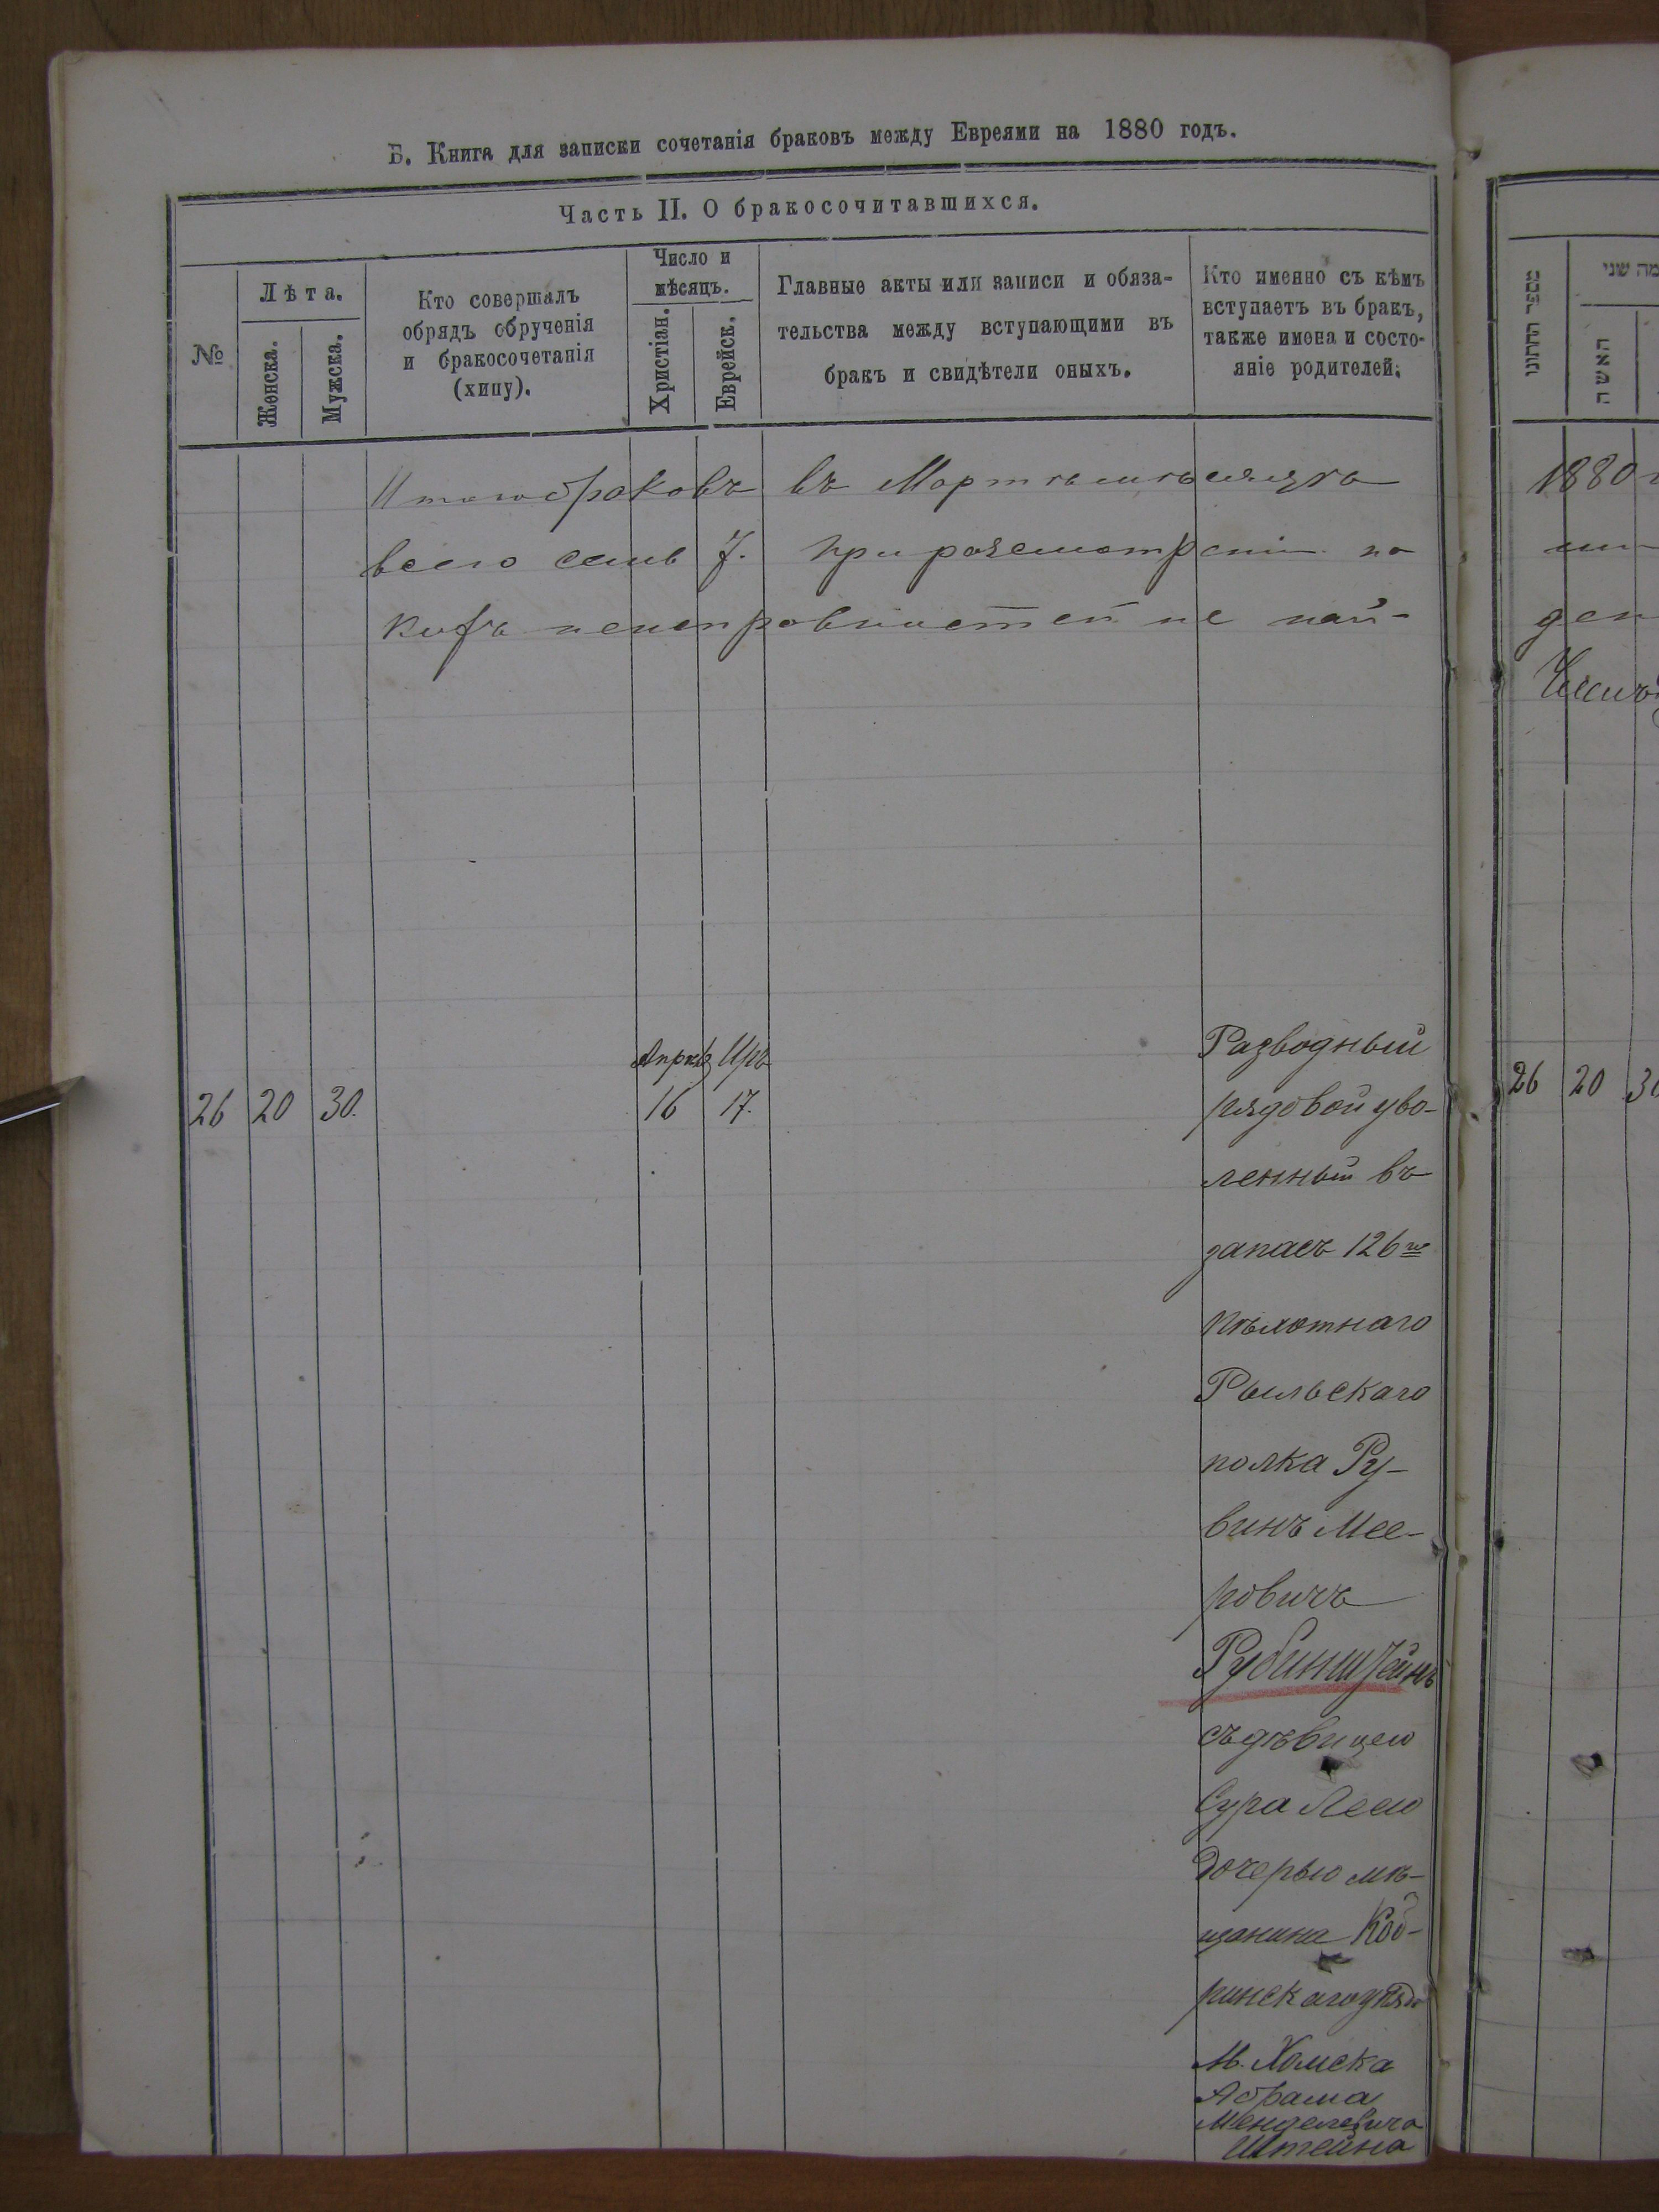 Б. Книга для записки сочетанія браковъ между Евреями на 1880 годъ.
Часть II. О бракосочитавшихся.
№
Лѣта.
Женска.
Мужска.
Кто совершалъ
обрядъ обрученія
и бракосочетанія
(хипу).
Число и
мѣсяцъ.
Христіан.
Еврейск.
Главные акты или записи и обяза-
тельства между вступающими въ
бракъ и свидѣтели оныхъ.
Кто именно съ кѣмъ
вступаетъ въ бракъ,
также имена и состо-
яніе родителей.
Итого браковъ въ Мартѣ мѣсяцѣ
всего семь 7. При разсмотреніи
неисправностей не най-
26 20 30. 16 17.
Разводный
рядовой уво-
ленный въ
запасъ 126го
пѣхотнаго
Рыльскаго
полка Ру-
винъ Мее-
ровичъ
Рубинштейнъ
съ дѣвицею
Сура Леею
дочерью мѣ-
щанина Коб-
ринскаго уѣзда
М. Хомска
Абрама
Менделевича
Штейна
מספר החתונו
מה שני
האשה
1880
ден
26 20